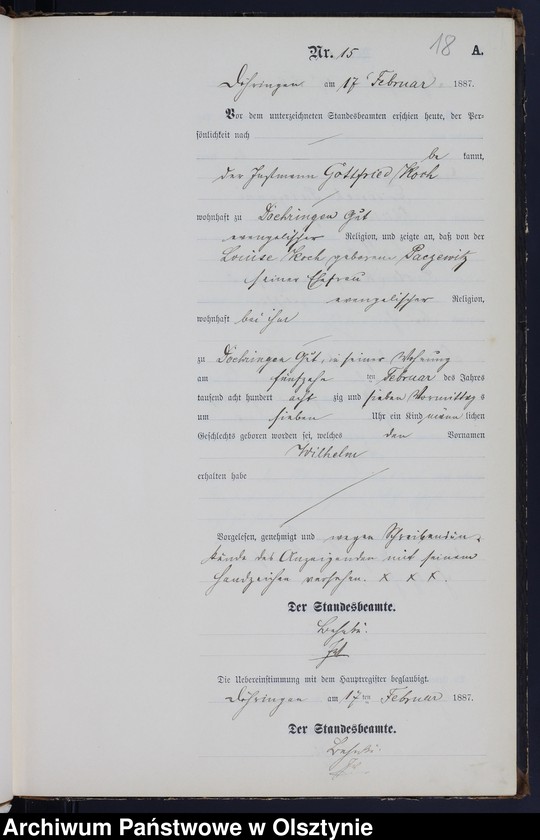 18
Nr. 15 A.
Döhringen am 17 Februar 1887.
Vor dem unterzeichneten Standesbeamten erschien heute, der Per-
sönlichkeit nach
be kannt,
der Instmann Gottfried Koch
wohnhaft zu Doehringen Gut
evangelischer Religion, und zeigte an, daß von der
Louise Koch geborene Paczewitz
seiner Ehefrau
evangelischer Religion,
wohnhaft bei ihm
zu Doehringen Gut, in seiner Wohnung
am fünfzehn ten Februar des Jahres
tausend acht hundert acht zig und sieben Vormittags
um sieben Uhr ein Kind männ lichen
Geschlechts geboren worden sei, welches den Vornamen
Wilhelm
erhalten habe
Vorgelesen, genehmigt und wegen Schreibensun-
kunde des Anzeigenden mit seinem
Handzeichen versehen. x x x.
Der Standesbeamte.
Die Uebereinstimmung mit dem Hauptregister beglaubigt.
Döhringen am 17 ten Februar 1887.
Der Standesbeamte.
Archiwum Państwowe w Olsztynie